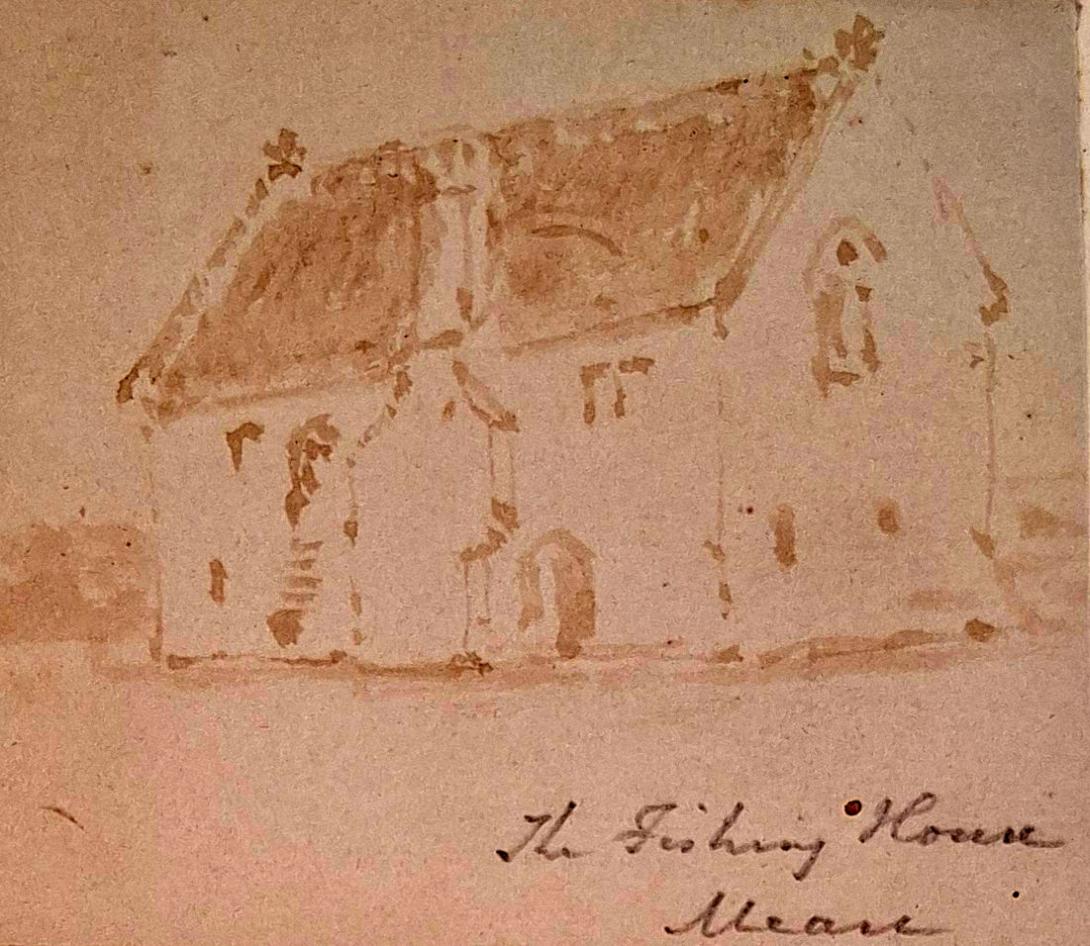 The Fishing House
Meare